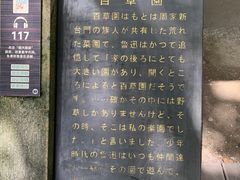 百草園
百草園はもとは周家新
台門の族人が共有した荒れ
た菜園で、魯迅はかつて追
憶して「家の後ろにとても
大きい園があり、聞くところ
によると百草園だそうで
す……確かその中には野
草しかありませんけど、そ
の時、そこは私の楽園でし
た。」と言いました。少年
時代の魯迅はいつも仲間達
その園で遊んで、
117